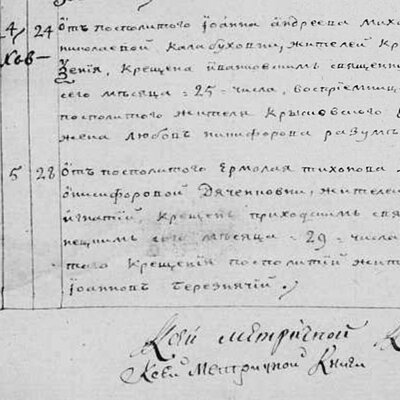 4 24 Ѿ посполитого Іоанна андреева
николаевой Калабуховны, жителей
Зенія, Крещена ивановскимъ
сего мѣсяца = 25 = числа, воспріемниц
посполитого жителя Крысковского
жена любовь никифорова
5 28 Ѿ посполитого Ермолая тихонова
онисифоровой Дяченковны, жителей
игнатій, Крещенъ приходскимъ
сего мѣсяца = 29 = числа
того Крещенія посполитій
Іоанновъ Березнячій
Сей метричной
Сей Метричной Книги